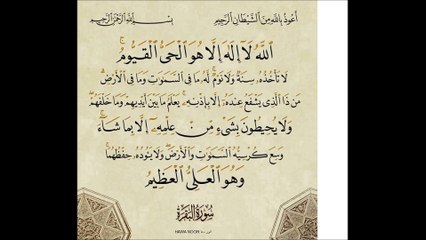 أعوذ بالله من الشيطان الرجيم
بسم الله الرحمن الرحيم
اللَّهُ لَا إِلَٰهَ إِلَّا هُوَ الْحَيُّ الْقَيُّومُ ۚ
لَا تَأْخُذُهُ سِنَةٌ وَلَا نَوْمٌ ۚ لَهُ مَا فِي السَّمَاوَاتِ وَمَا فِي الْأَرْضِ ۗ
مَن ذَا الَّذِي يَشْفَعُ عِندَهُ إِلَّا بِإِذْنِهِ ۚ يَعْلَمُ مَا بَيْنَ أَيْدِيهِمْ وَمَا خَلْفَهُمْ ۖ
وَلَا يُحِيطُونَ بِشَيْءٍ مِّنْ عِلْمِهِ إِلَّا بِمَا شَاءَ ۚ
وَسِعَ كُرْسِيُّهُ السَّمَاوَاتِ وَالْأَرْضَ ۖ وَلَا يَئُودُهُ حِفْظُهُمَا ۚ
وَهُوَ الْعَلِيُّ الْعَظِيمُ
سُورَةُ الْبَقَرَة